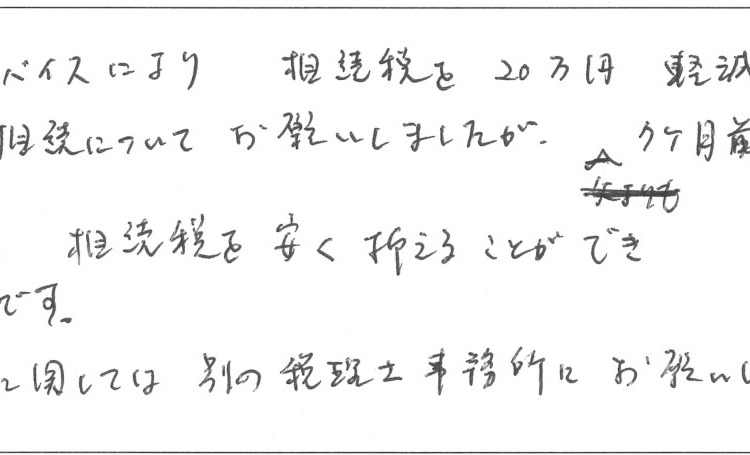 バイスにより 相続税を 20万円 軽減
相続について お願いしましたが、 クケ月前
相続税を 安く 抑えることが でき
です。
に関しては 別の 税理士事務所に お願いし